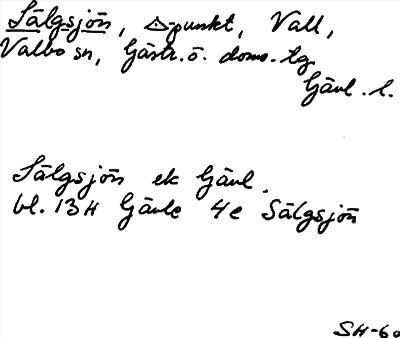 Sälgsjön, △-punkt, Vall,
Valbo sn, Gästr. ö. doms. tg
Gävl. l.
Sälgsjön ek Gävl.
bl. 13H Gävle 4e Sälgsjön
SH-60